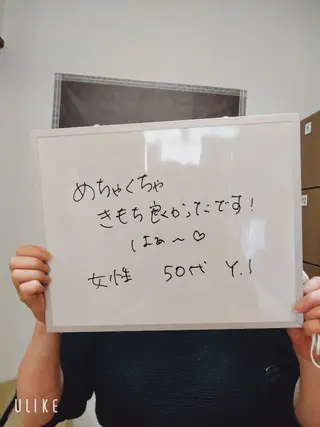 めちゃくちゃ
きもち良くかったです!
はぁ〜♡
女性 50代 Y.I
ULIKE